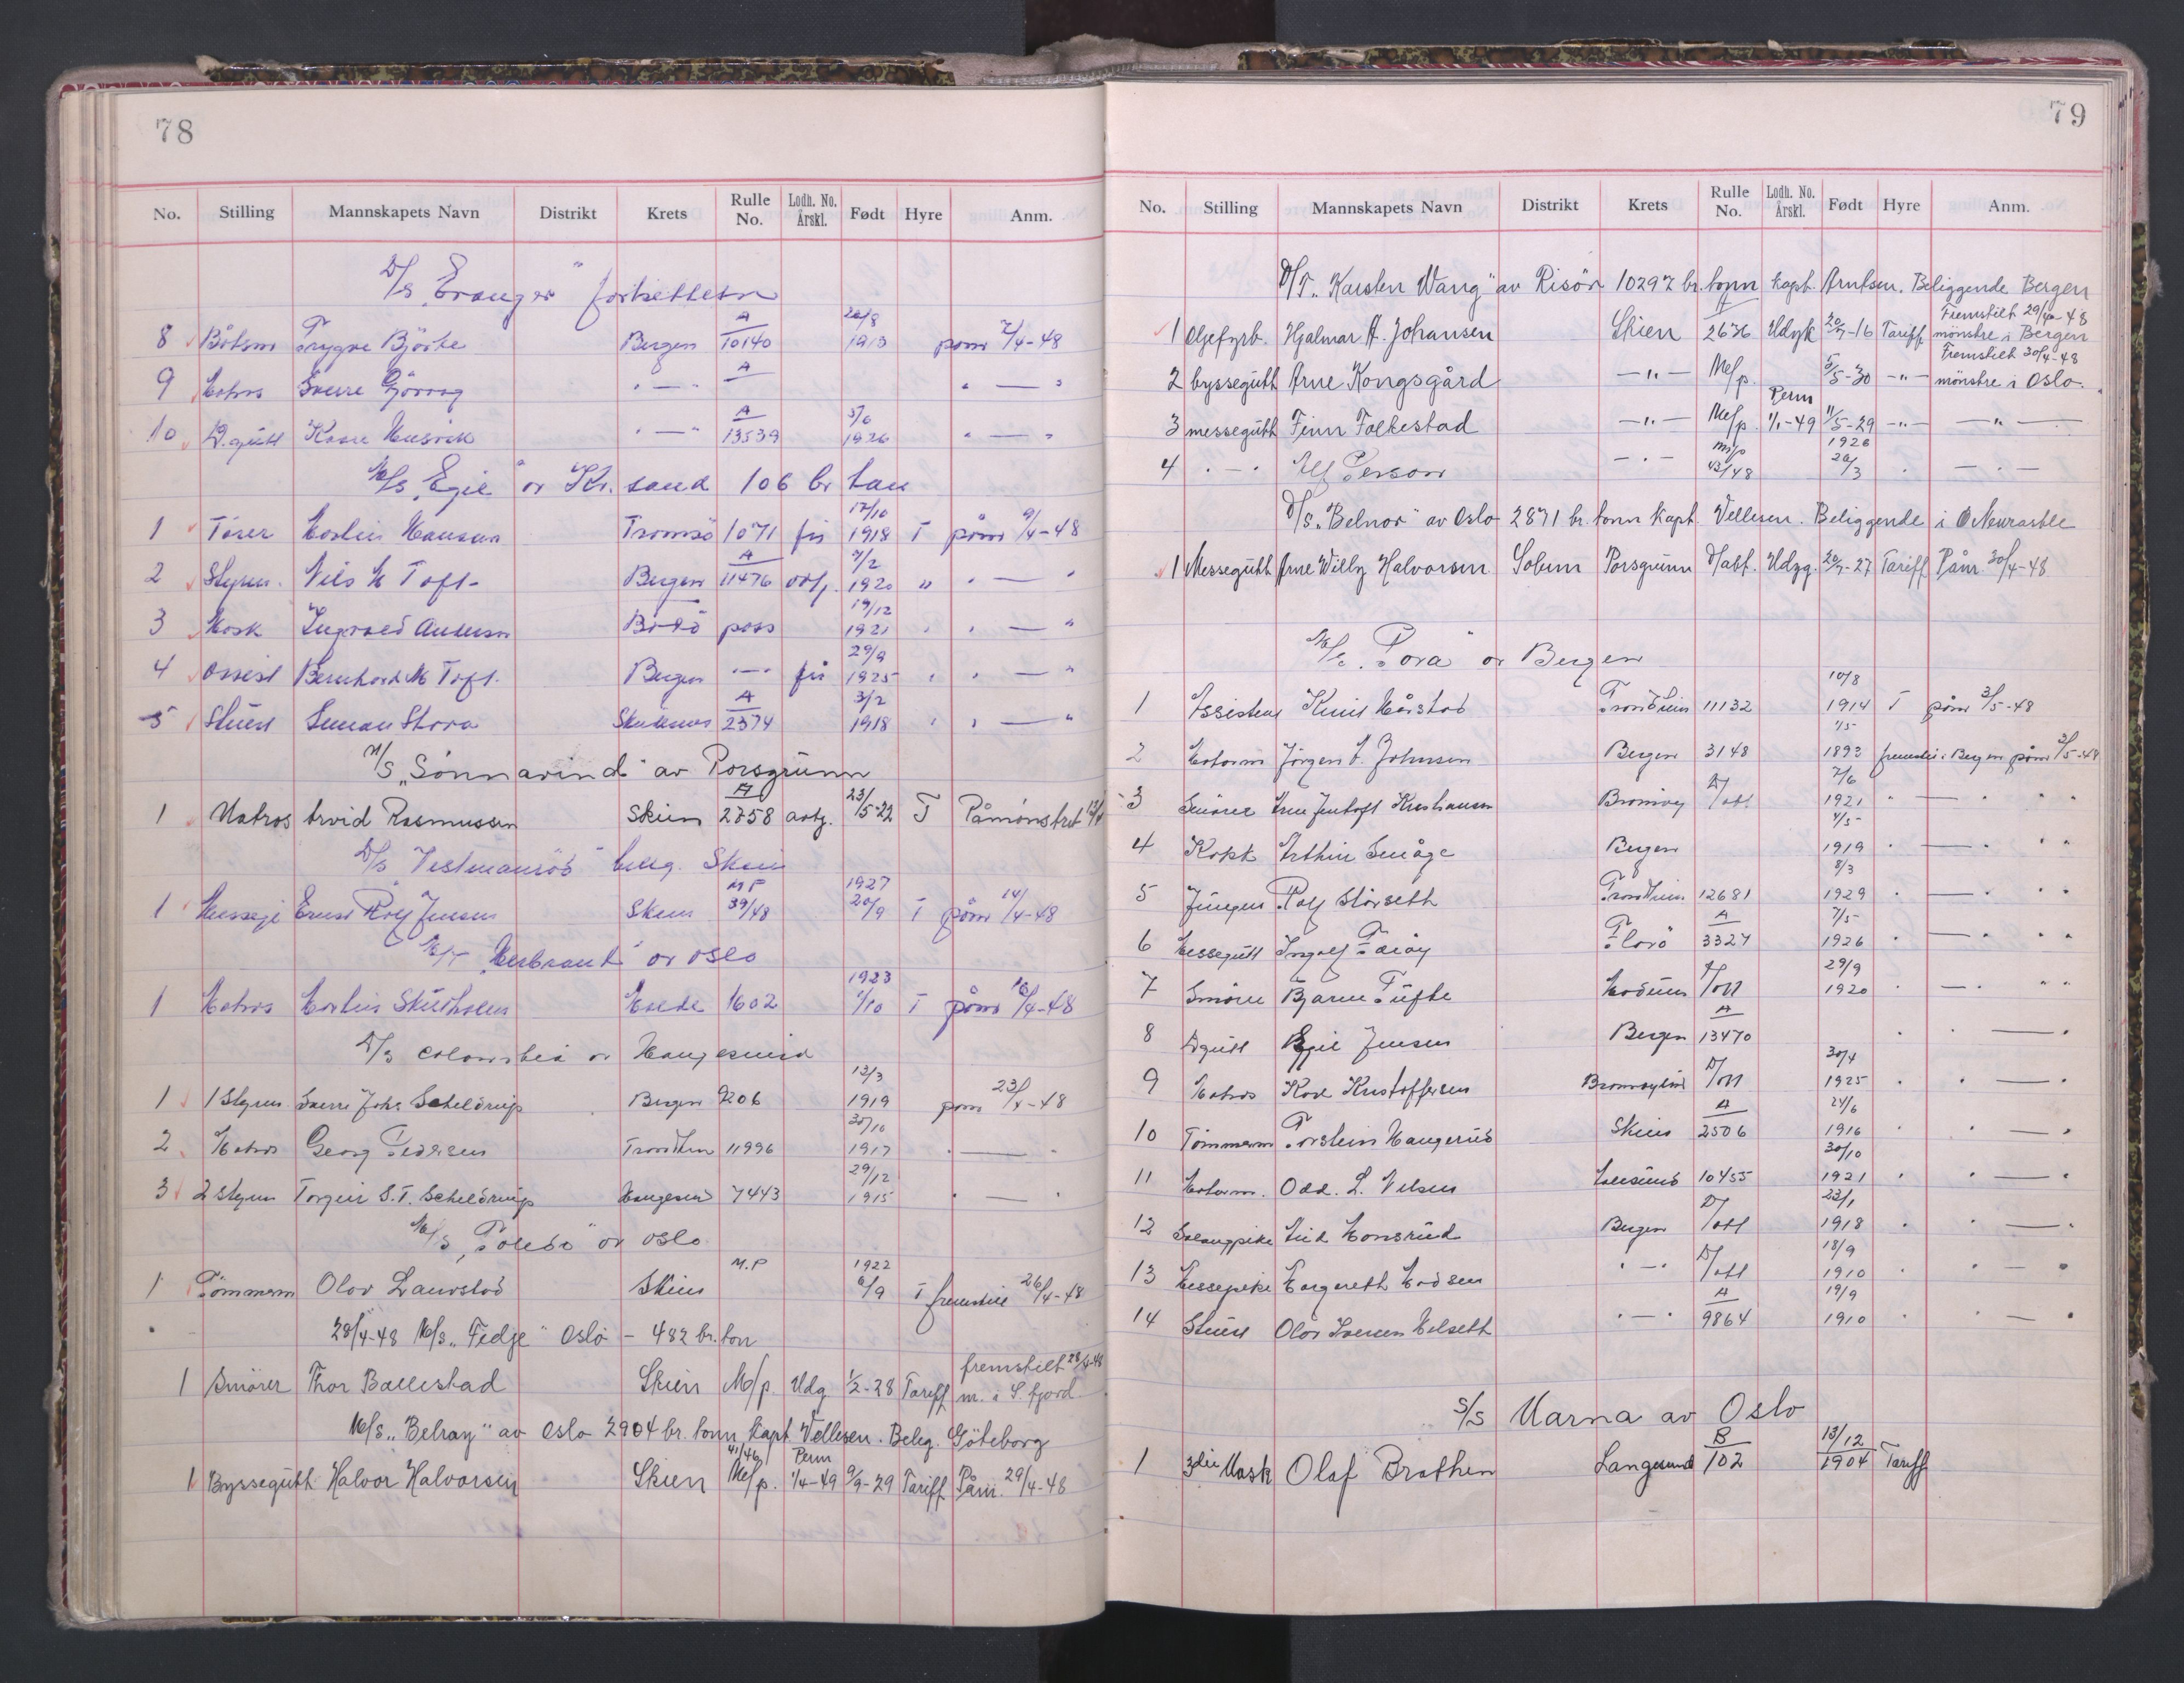 78
No. Stilling Mannskapets Navn Distrikt Krets Rulle No. Lodh. No. Årskl. Født Hyre Anm.
D/S „Evanger" fortsettelse
8 Båtsm Trygve Björke Bergen A 10140 20/8 1913 påm 7/4-48
9 Matros Sverre " — " A " — "
10 D.gutt Kaare " — " A 13539 5/6 1926 " — "
M/S „Egil" av Kr. sand 106 br ton
1 Martin Hansen Tromsö 1071 17/10 1918 T påm 9/4-48
2 Styrm. Nils M Toft Bergen A 11476 7/2 1920 " " — "
3 Mask Ingvald Andersen Bodö pass 19/12 1921 " " — "
4 Assist Bernhard M Toft. Bergen — 29/9 1925 " " — "
5 Stuert A 2374 3/2 1918 " " — "
M/S „Sønnavind" av Porsgrunn
1 Matros Arvid Rasmussen Skien A 2758 23/5-22 T Påmønstret 13/4
D/S „Vestmanröd" belig. Skien
1 Messegt Ernst Rolf Jensen Skien MP 39/48 1927 20/9 T påm 14/4-48
M/T „Herbrand" av Oslo
1 Matros Martin Molde 1602 1923 1/10 T påm 16/4-48
D/S Colombia av Haugesund
1 1 Styrm Sverre Johs Scheldrup Bergen 9206 13/3 1919 påm 23/4-48
2 Matros Georg Pedersen Trondhm 11996 30/10 1917 " — "
3 2 Styrm Torgeir S. T. Scheldrup Haugesund 7443 29/12 1915 " — "
M/S „Toledo" av Oslo
1 Tömmerm Olav Laurstad Skien M.P 1922 6/9 T fremstill 26/4-48
28/4-48 M/S „Fedje" Oslo - 482 br. ton
1 Smörer Thor Ballestad Skien M/p. Udg 1/2-28 Tariff fremstilt 28/4-48 m. i S. fjord.
M/S „Belray" av Oslo 2904 br. tonn Kapt. Vellesen. Belig. Göteborg
1 Byssegutt Halvor Halvorsen Skien 41/46 M/p. Perm 1/4-49 9/9-29 Tariff Påm. 29/4-48
79
No. Stilling Mannskapets Navn Distrikt Krets Rulle No. Lodh. No. Årskl. Født Hyre Anm.
D/T. „Karsten Wang" av Risör 10297 br. tonn Kapt. Arntsen. Beliggende Bergen
1 Oljefyrb. Hjalmar A. Johansen Skien A 2636 Udgk 20/7-16 Tariff Fremstilt 29/4-48 mönstre i Bergen
2 byssegutt Arne Kongsgård — " — M/p. 5/5-30 — " — Fremstilt 30/4-48 mönstre i Oslo.
3 messegutt Finn Folkestad — " — M/p. Perm 1/1-49 11/5-29 — " — — " —
4 " — " Alf Person — " — M/p 43/48 1926 20/3 " — " —
D/S. „Belnor" av Oslo 2871 br. tonn Kapt. Vellesen. Beliggende i Newcastle
1 Messegutt Arne Willy Halvorsen Solum Porsgrunn D/att. Udyg. 20/7-27 Tariff Påm. 30/4-48
M/S. „Tora" av Bergen
1 Assistent Knut Trondheim 11132 10/8 1914 T påm 3/5-48
2 Motorm Jörgen Johnsen Bergen 3148 1/5 1893 fremstil i Bergen påm 3/5-48
3 Smörer Arne Jentoft Kristiansen Brönnöy D/att 7/6 1921 " — " "
4 Kokk Arthur Småge Bergen 4/5 1919 " — " "
5 Jungm Rolf Störseth Trondheim 12681 8/3 1929 " — " "
6 Messegutt Ingolf Florö A 3327 7/5 1926 " — " "
7 Smörer Bjarne Tufte Modum D/att 29/9 1920 " — " "
8 Dgutt Egil Jensen Bergen A 13470 " " — "
9 Matros Kåre Kristoffersen D/att 30/4 1925 " " — "
10 Tömmerm Torstein Haugerud Skien A 2506 24/6 1916 " — "
11 Motorm. Odd. L. Nilsen Aalesund 10455 30/10 1921 " " — "
12 Salongpike Aud Bergen D/att 23/1 1918 " " — "
13 Messepike Margareth Madsen " — " D/att 18/9 1910 " " — "
14 Stuert Olav Iversen Melseth " — " A 9864 19/9 1910 " " — "
S/S Varna av Oslo
1 3die Mask Olaf Brathen Langesund B 102 13/12 1904 Tariff